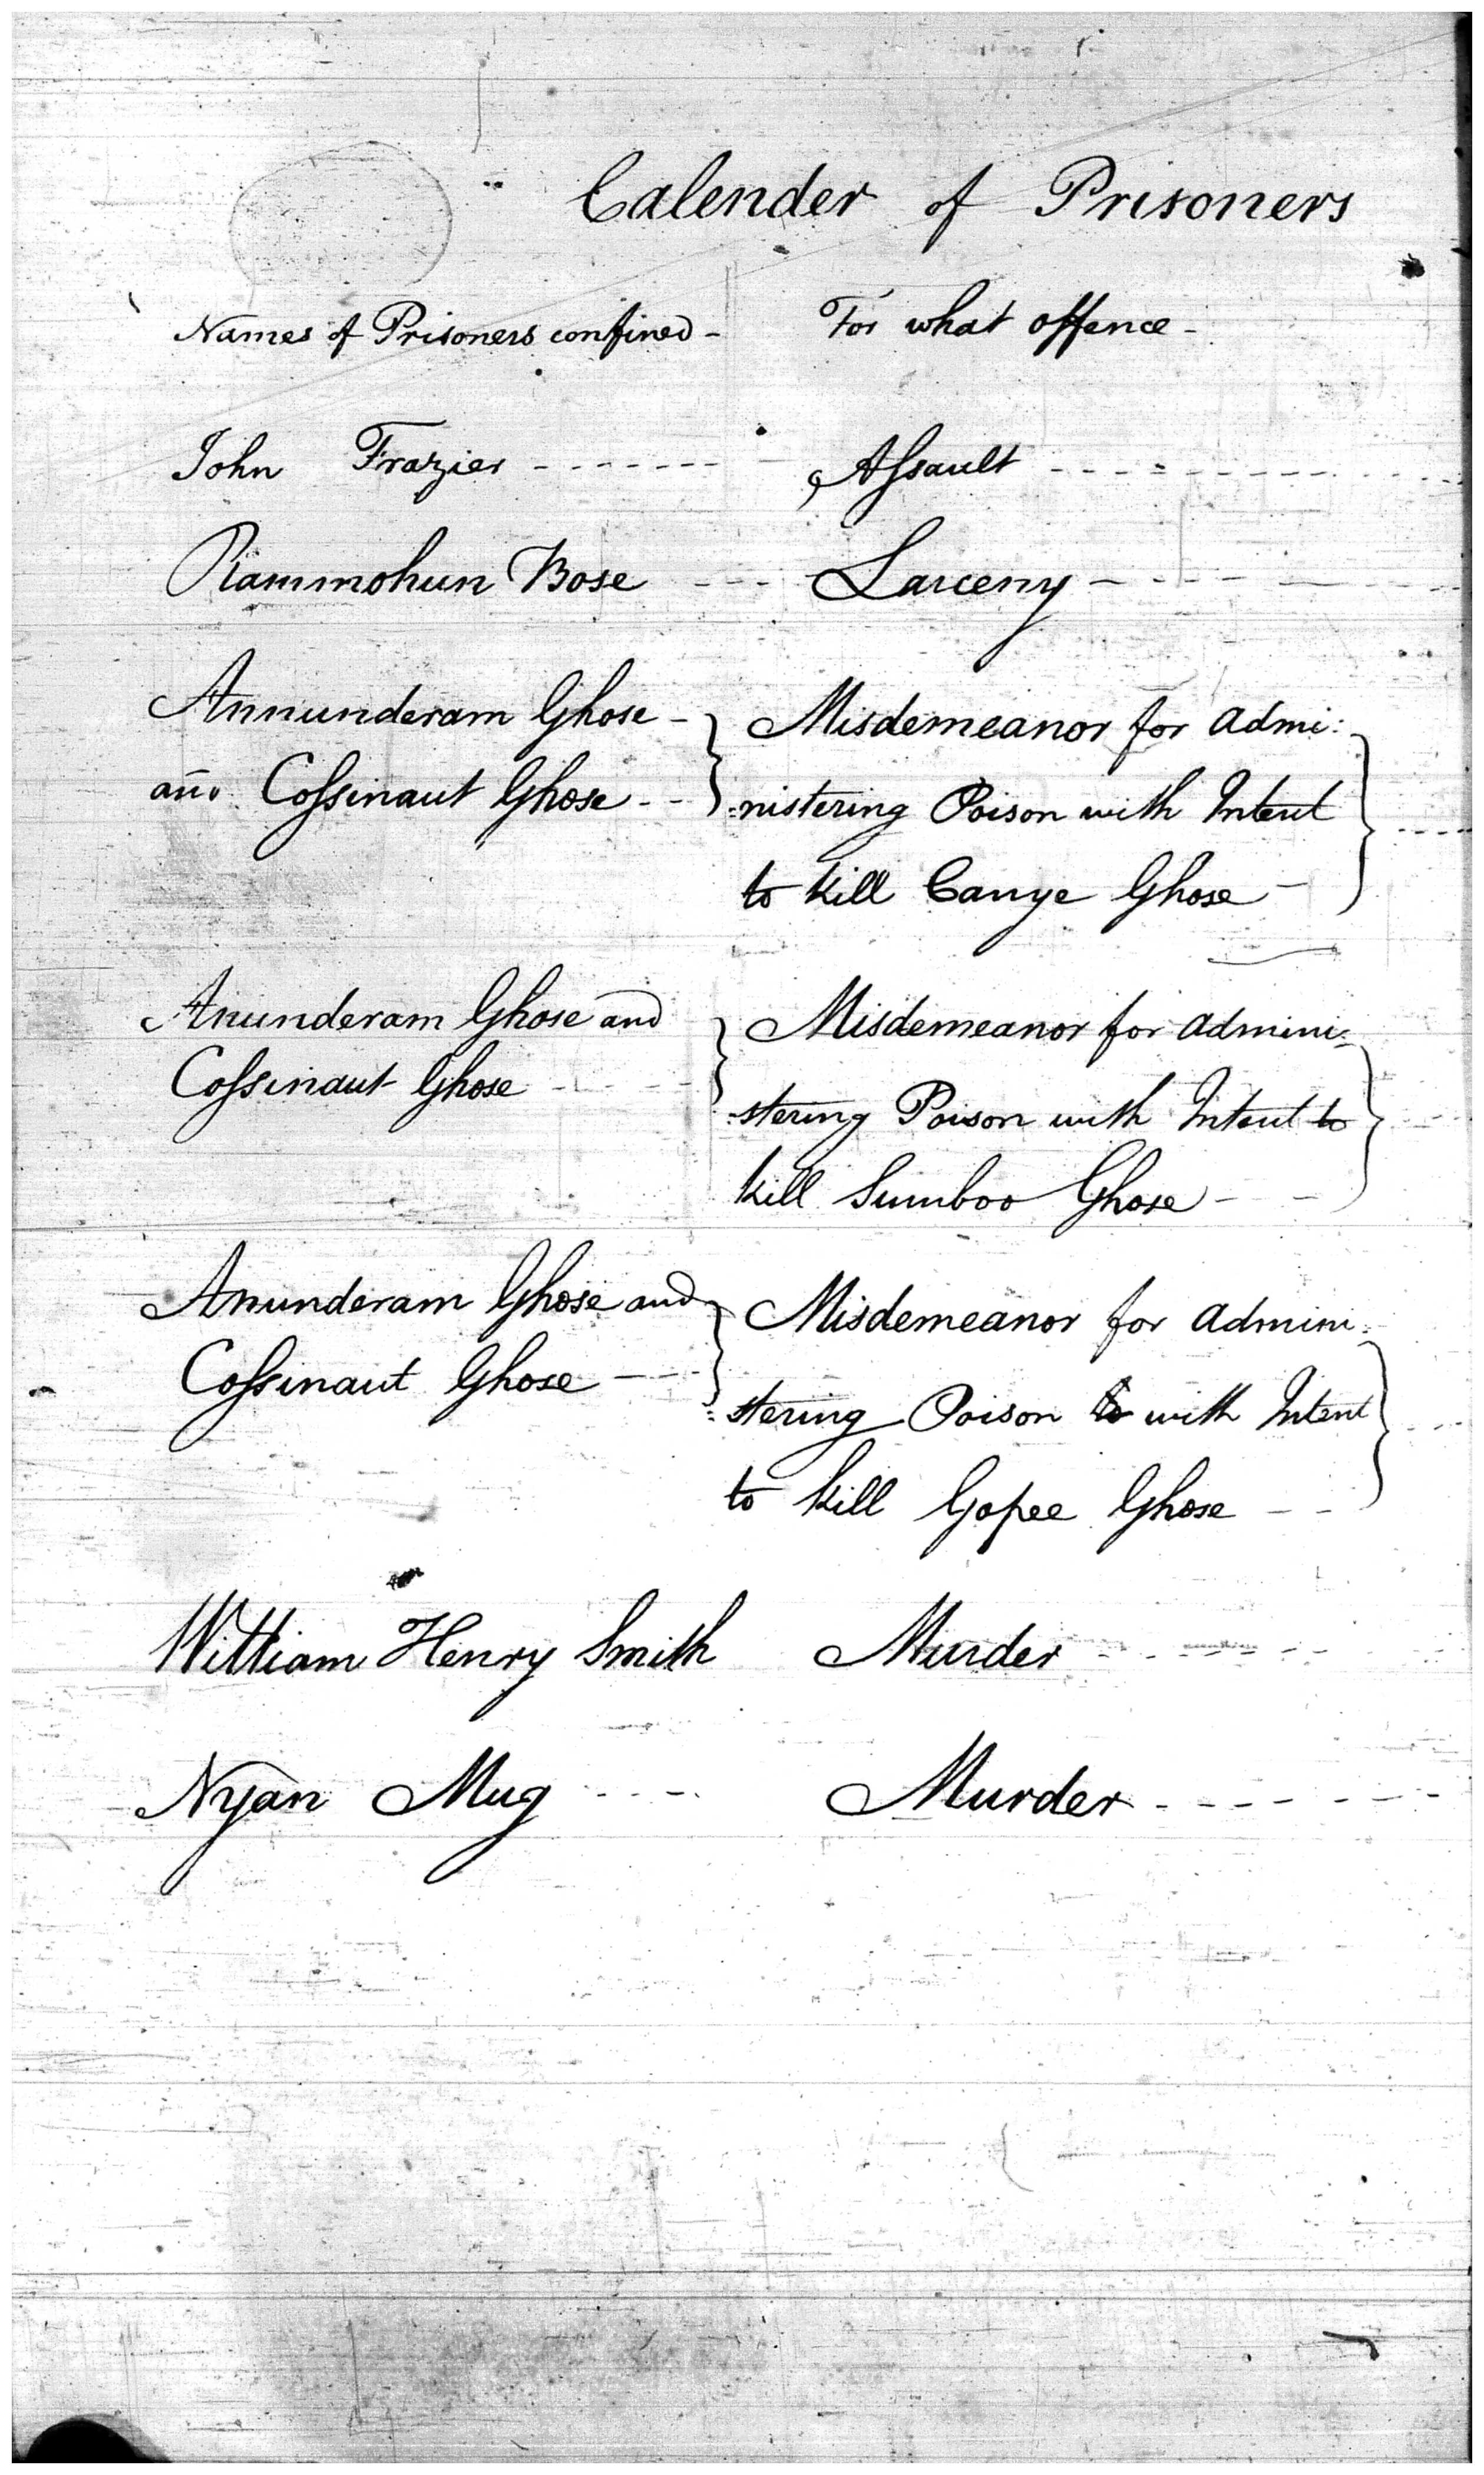 Calender of Prisoners
Names of Prisoners confined - For what offence -
John Frazier - - - - - - - Assault - - - - - - - - - -
Rammohun Bose - - - Larceny - - - -
Annunderam Ghose - Misdemeanor for admi:
and Cossinaut Ghose - - :nistering Poison with Intent
to kill Canye Ghose -
Anunderam Ghose and Misdemeanor for admini:
Cossinaut Ghose - - - - :stering Poison with Intent to
kill Sumboo Ghose - -
Anunderam Ghose and Misdemeanor for admini:
Cossinaut Ghose - - - :stering Poison to with Intent
to kill Gopee Ghose - -
William Henry Smith Murder - - - - - - -
Nyan Mug - - - - Murder - - - - - - -